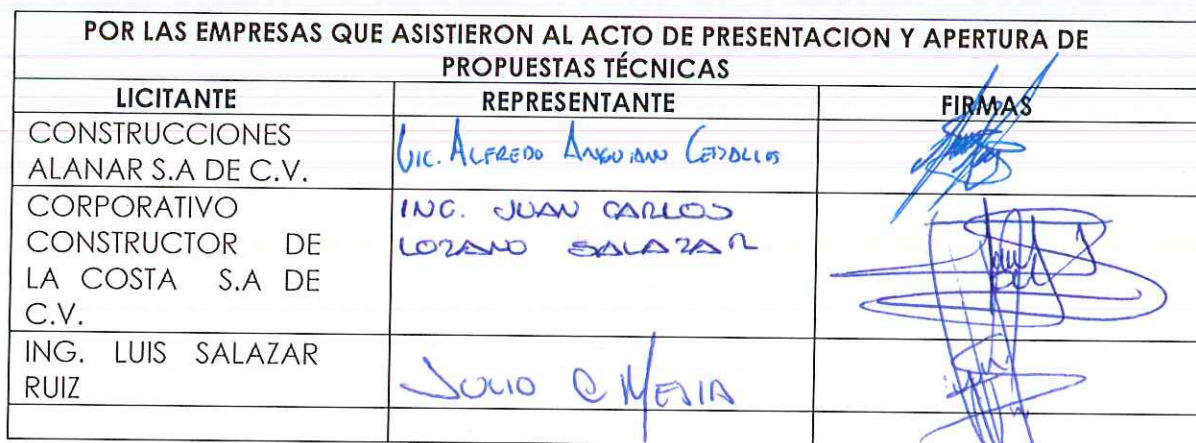 POR LAS EMPRESAS QUE ASISTIERON AL ACTO DE PRESENTACION Y APERTURA DE
PROPUESTAS TÉCNICAS
LICITANTE REPRESENTANTE FIRMAS
CONSTRUCCIONES
ALANAR S.A DE C.V.
LIC. ALFREDO ANGUIANO CEBALLOS
CORPORATIVO
CONSTRUCTOR DE
LA COSTA S.A DE
C.V.
ING. JUAN CARLOS
LOZANO SALAZAR
ING. LUIS SALAZAR
RUIZ
JULIO C MEJIA